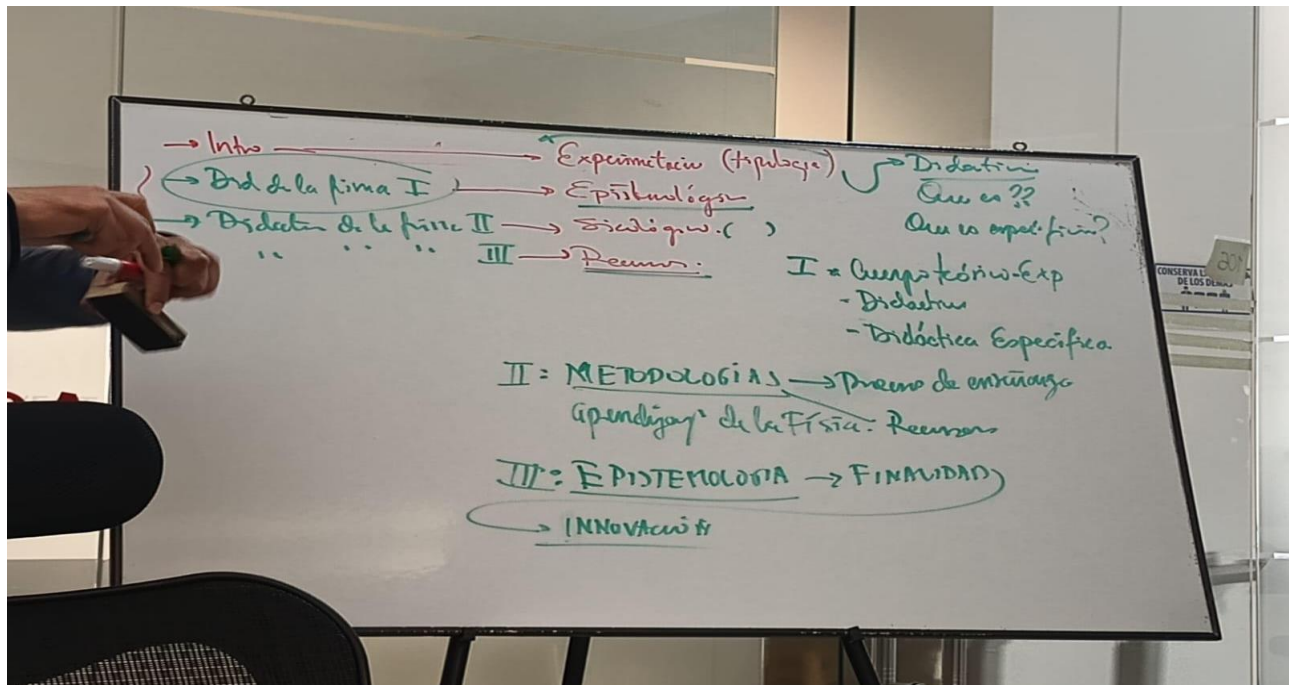 → Intro → Experimetacin (tipologia)
→ Did de la física I → Epistmológica
→ Didactica de la física II → Sicológico. ( )
" " " III → Recursos.
→ Didactica
Que es ??
Que es especifica?
I = Cuerpo teórico-Exp
- Didactica
- Didáctica Especifica
II : METODOLOGIAS → Proceso de enseñanza
aprendizaje de la Física: Recursos
III : EPISTEMOLOGIA → FINALIDAD
→ INNOVACIÓN
CONSERVA
DE LOS DEMÁS
201